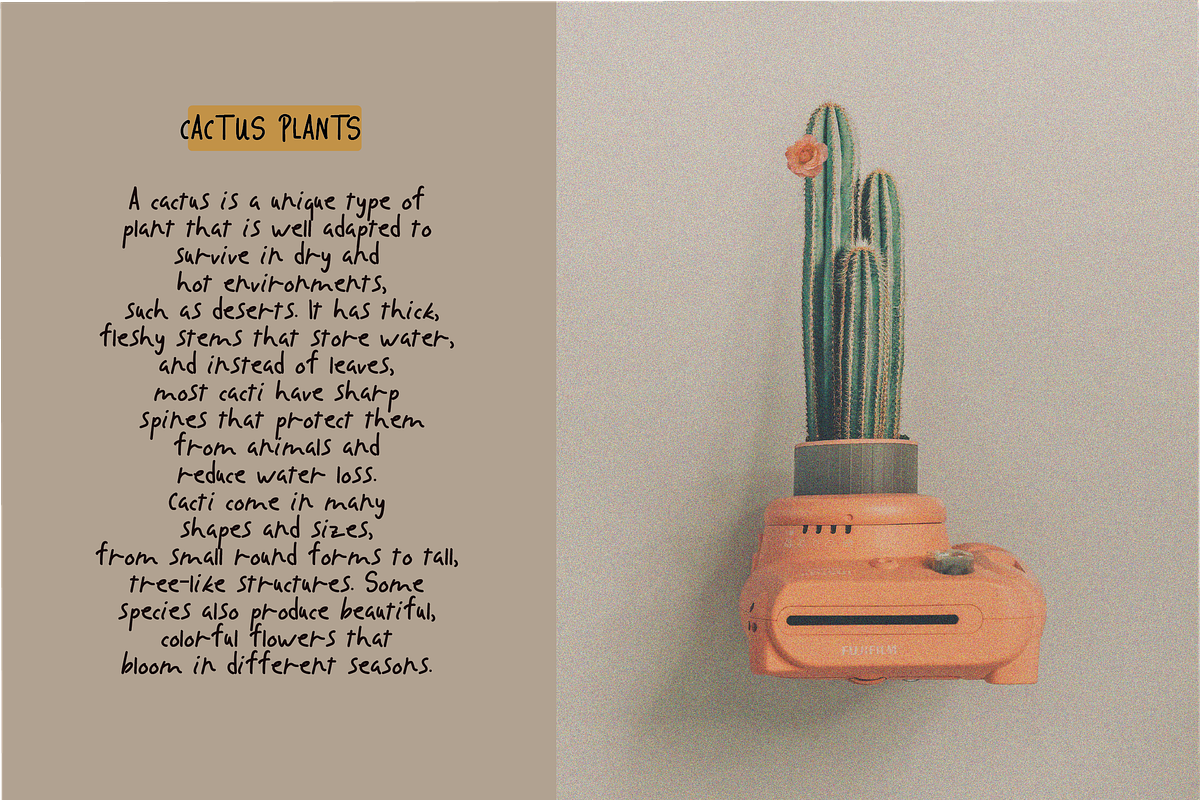 CACTUS PLANTS
A cactus is a unique type of
plant that is well adapted to
survive in dry and
hot environments,
such as deserts. It has thick,
fleshy stems that store water,
and instead of leaves,
most cacti have sharp
spines that protect them
from animals and
reduce water loss.
Cacti come in many
shapes and sizes,
from small round forms to tall,
tree-like structures. Some
species also produce beautiful,
colorful flowers that
bloom in different seasons.
FUJIFILM